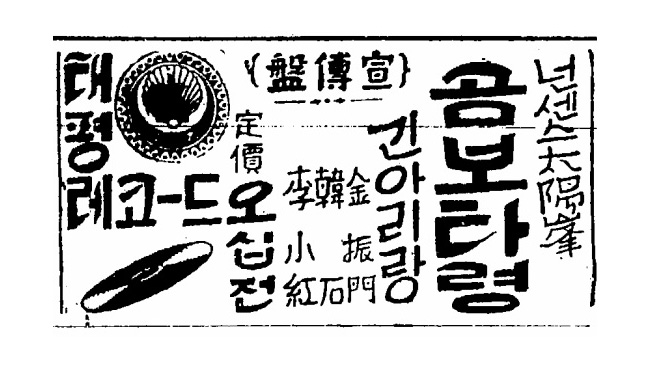 넌센스太陽峯
곰보타령
(宣傳盤)
긴아리랑
金振門
韓石
李小紅
定價
오십전
태평
레코-드